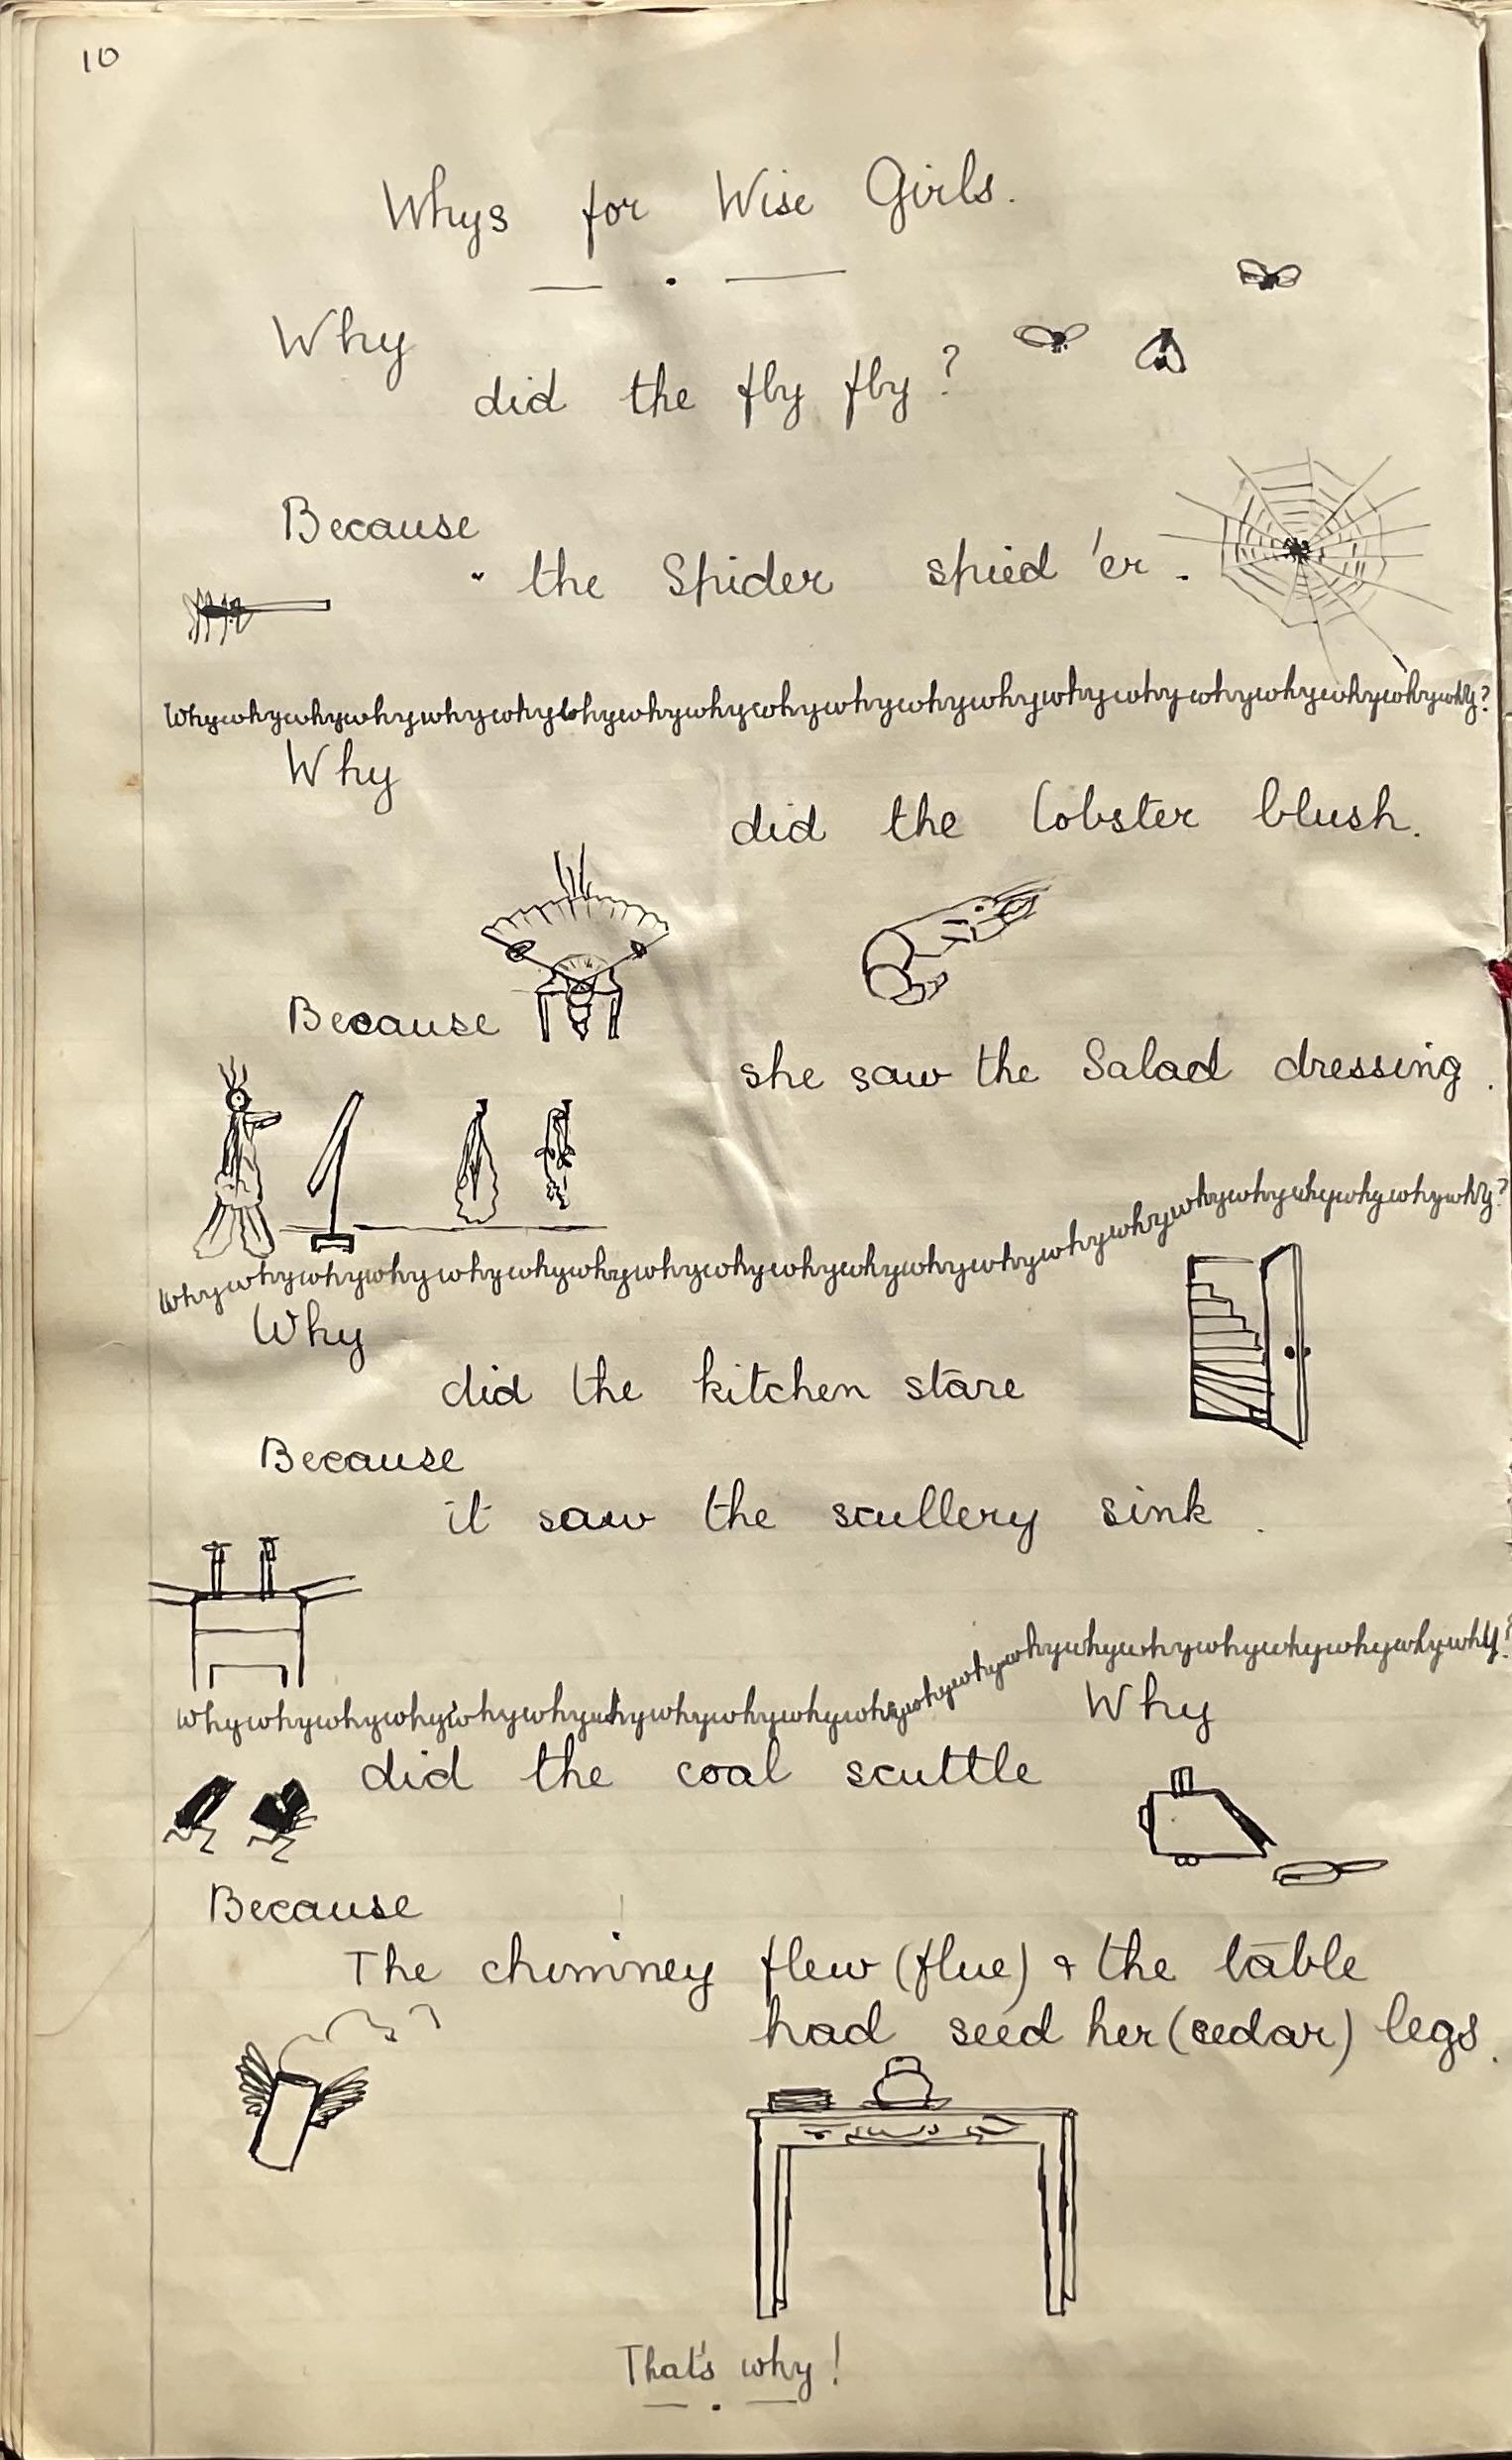 10
Whys for Wise Girls.
Why
did the fly fly?
Because
the Spider spied 'er.
Whywhywhywhywhywhywhywhywhywhywhywhywhywhywhywhywhywhywhywhy?
Why
did the lobster blush.
Because
she saw the Salad dressing.
Whywhywhywhywhywhywhywhywhywhywhywhywhywhywhywhywhywhywhywhywhy?
Why
did the kitchen stare
Because
it saw the scullery sink.
Whywhywhywhywhywhywhywhywhywhywhywhywhywhywhywhywhywhywhywhywhy?
Why
did the coal scuttle
Because
The chimney flew (flue) & the table
had seed her (cedar) legs.
That's why!